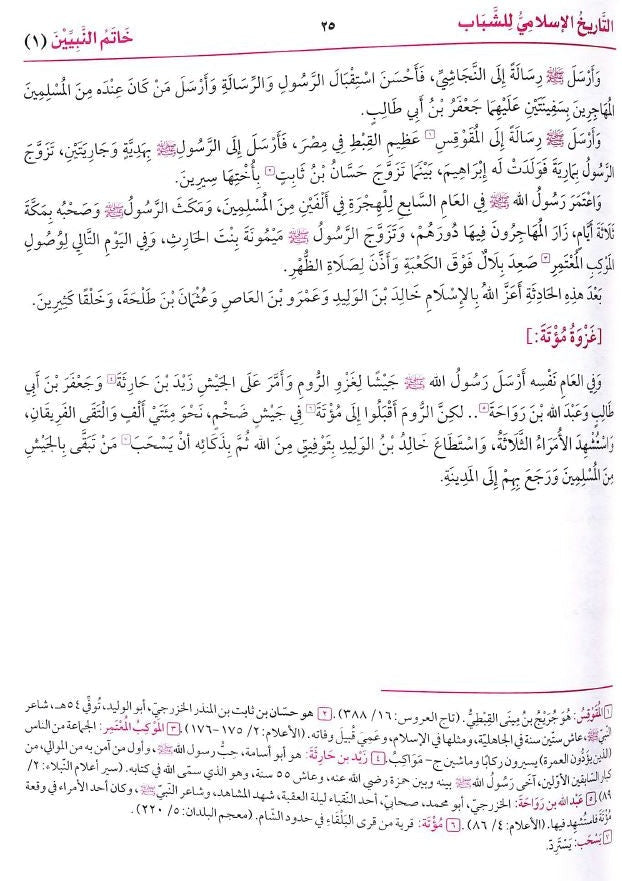 التَّارِيخُ الإِسْلامِيُّ لِلشَّبَاب ٢٥ خَاتَمُ النَّبِيِّيْنَ (١)
وَأَرْسَلَ ﷺ رِسَالَةً إِلَى النَّجَاشِيِّ، فَأَحْسَنَ اسْتِقْبَالَ الرَّسُولِ وَالرِّسَالَةِ وَأَرْسَلَ مَنْ كَانَ عِنْدَه مِنَ المُسْلِمِينَ
المُهَاجِرِينَ بِسَفِينَتَيْنِ عَلَيْهِمَا جَعْفَرُ بْنُ أَبِي طَالِبٍ.
وَأَرْسَلَ ﷺ رِسَالَةً إِلَى المُقَوْقِسِ١ عَظِيمِ القِبْطِ فِي مِصْرَ، فَأَرْسَلَ إِلَى الرَّسُولِ ﷺ بِهَدِيَّةٍ وَجَارِيَتَيْنِ، تَزَوَّجَ
الرَّسُولُ بِمَارِيَةَ فَوَلَدَتْ لَه إِبْرَاهِيمَ، بَيْنَمَا تَزَوَّجَ حَسَّانُ بْنُ ثَابِتٍ٢ بِأُخْتِهَا سِيرِينَ.
وَاعْتَمَرَ رَسُولُ الله ﷺ فِي العَامِ السَّابِعِ لِلْهِجْرَةِ فِي أَلْفَيْنِ مِنَ المُسْلِمِينَ، وَمَكَثَ الرَّسُولُ ﷺ وَصَحْبُه بِمَكَّةَ
ثَلَاثَةَ أَيَّامٍ، زَارَ المُهَاجِرُونَ فِيهَا دُورَهُمْ، وَتَزَوَّجَ الرَّسُولُ ﷺ مَيْمُونَةَ بِنْتَ الحَارِثِ، وَفِي اليَوْمِ التَّالِي لِوُصُولِ
المَوْكِبِ المُعْتَمِرِ٣ صَعِدَ بِلَالٌ فَوْقَ الكَعْبَةِ وَأَذَّنَ لِصَلَاةِ الظُّهْرِ.
بَعْدَ هذِهِ الحَادِثَةِ أَعَزَّ اللهُ بِالإِسْلَامِ خَالِدَ بْنَ الوَلِيدِ وَعَمْرَو بْنَ العَاصِ وَعُثْمَانَ بْنَ طَلْحَةَ، وَخَلْقًا كَثِيرِينَ.
[غَزْوَةُ مُؤْتَةَ:]
وَفِي العَامِ نَفْسِه أَرْسَلَ رَسُولُ الله ﷺ جَيْشًا لِغَزْوِ الرُّومِ وَأَمَّرَ عَلَى الجَيْشِ زَيْدَ بْنَ حَارِثَةَ٤ وَجَعْفَرَ بْنَ أَبِي
طَالِبٍ وَعَبْدَ الله بْنَ رَوَاحَةَ٥.. لكِنَّ الرُّومَ أَقْبَلُوا إِلَى مُؤْتَةَ٦ فِي جَيْشٍ ضَخْمٍ، نَحْوَ مِئَتَيْ أَلْفٍ وَالْتَقَى الفَرِيقَانِ،
وَاسْتُشْهِدَ الأُمَرَاءُ الثَّلَاثَةُ، وَاسْتَطَاعَ خَالِدُ بْنُ الوَلِيدِ بِتَوْفِيقٍ مِنَ الله ثُمَّ بِذَكَائِه أَنْ يَسْحَبَ٧ مَنْ تَبَقَّى بِالجَيْشِ
مِنَ المُسْلِمِينَ وَرَجَعَ بِهِمْ إِلَى المَدِينَةِ.
١ المُقَوْقِسُ: هُوَ جُرَيْجُ بنُ مِينَى القِبْطِيُّ. (تاج العروس: ١٦/ ٣٨٨). ٢ هو حسّان بن ثابت بن المنذر الخزرجيّ، أبو الوليد، تُوفِّي ٥٤هـ، شاعر
النبيّ ﷺ، عاش ستّين سنة في الجاهليّة، ومثلها في الإسلام، وعَمِي قُبيلَ وفاته. (الأعلام: ٢/ ١٧٥-١٧٦). ٣ المَوْكِبُ المُعْتَمِر: الجماعة من الناس
(الذين يؤدّون العمرة) يسيرون ركابًا وماشين ج- مَواكِبُ. ٤ زَيْد بن حَارِثَةَ: هو أبو أسامة، حِبُّ رسول الله ﷺ، وأول من آمن به من الموالي، من
كبار السّابقين الأوّلين، آخَى رَسُولُ الله ﷺ بينه وبين حمزة رضي الله عنه، وعاش ٥٥ سنة، وهو الذي سمّى الله في كتابه. (سير أعلام النّبلاء: ٢/
٨٩). ٥ عَبْدُ الله بن رَوَاحَة: الخزرجيّ، أبو محمد، صحابيّ، أحد النقباء ليلة العقبة، شهد المشاهد، وشاعر النبيّ ﷺ، وكان أحد الأمراء في وقعة
مُؤْتَة فاستُشهد فيها. (الأعلام: ٤/ ٨٦). ٦ مُؤْتَة: قرية من قرى البَلْقَاءِ في حدود الشّام. (معجم البلدان: ٥/ ٢٢٠).
٧ يَسْحَب: يَسْتَرِدّ.